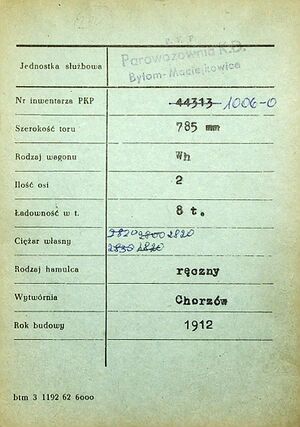 P.K.P
Parowozownia K.D.
Bytom-Maciejkowice
Jednostka służbowa
Nr inwentarza PKP 44313 1006-0
Szerokość toru 785 mm
Rodzaj wagonu Wh
Ilość osi 2
Ładowność w t. 8 t.
Ciężar własny 2820 2800 2820
2830 2820
Rodzaj hamulca ręczny
Wytwórnia Chorzów
Rok budowy 1912
btm 3 1192 62 6000